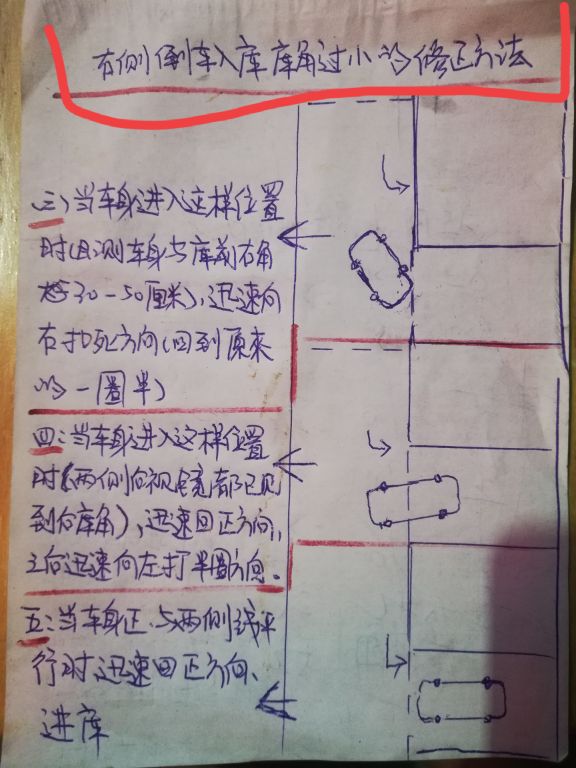 右侧倒车入库库角过小的修正方法
三)当车身进入这样位置
时(目测车身与库前右角
30-50厘米),迅速向
右打死方向(回到原来
的一圈半)
四:当车身进入这样位置
时(两侧向视镜都已见
到后库角),迅速回正方向,
立向迅速向左打半圈方向.
五:当车身正,与两侧线平
行时,迅速回正方向、
进库